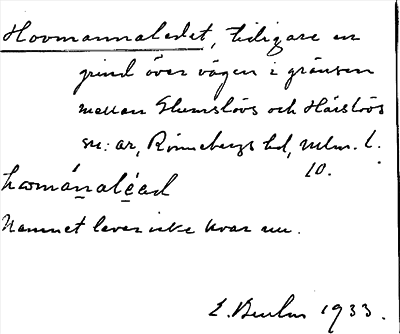 Hovmannaledet, tidigare en
grind över vägen i gränsen
mellan Glumslövs och Härslövs
sn:ar, Rönnebergs hd, Mlm. l.
10.
hovmánaléad
Namnet lever icke kvar nu.
1933.